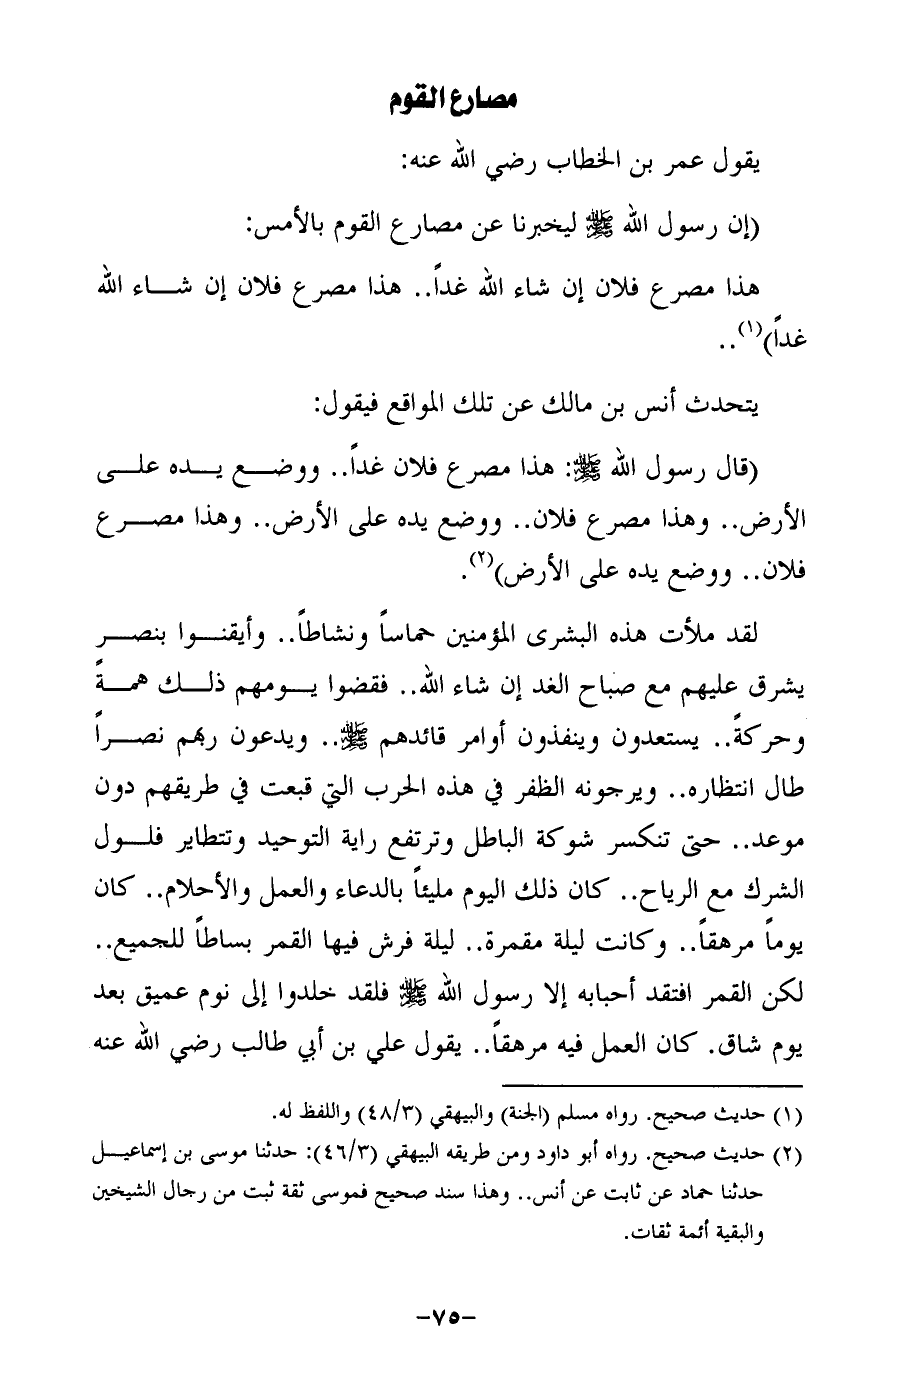 مصارع القوم
يقول عمر بن الخطاب رضي الله عنه:
(إن رسول الله ﷺ ليخبرنا عن مصارع القوم بالأمس:
هذا مصرع فلان إن شاء الله غداً.. هذا مصرع فلان إن شاء الله
غداً)(١)..
يتحدث أنس بن مالك عن تلك المواقع فيقول:
(قال رسول الله ﷺ: هذا مصرع فلان غداً.. ووضع يده على
الأرض.. وهذا مصرع فلان.. ووضع يده على الأرض.. وهذا مصرع
فلان.. ووضع يده على الأرض)(٢).
لقد ملأت هذه البشرى المؤمنين حماساً ونشاطاً.. وأيقنوا بنصر
يشرق عليهم مع صباح الغد إن شاء الله.. فقضوا يومهم ذلك همةً
وحركةً.. يستعدون وينفذون أوامر قائدهم ﷺ.. ويدعون ربهم نصراً
طال انتظاره.. ويرجونه الظفر في هذه الحرب التي قبعت في طريقهم دون
موعد.. حتى تنكسر شوكة الباطل وترتفع راية التوحيد وتتطاير فلول
الشرك مع الرياح.. كان ذلك اليوم مليئاً بالدعاء والعمل والأحلام.. كان
يوماً مرهقاً.. وكانت ليلة مقمرة.. ليلة فرش فيها القمر بساطاً للجميع..
لكن القمر افتقد أحبابه إلا رسول الله ﷺ فلقد خلدوا إلى نوم عميق بعد
يوم شاق. كان العمل فيه مرهقاً.. يقول علي بن أبي طالب رضي الله عنه
(١) حديث صحيح. رواه مسلم (الجنة) والبيهقي (٤٨/٣) واللفظ له.
(٢) حديث صحيح. رواه أبو داود ومن طريقه البيهقي (٤٦/٣): حدثنا موسى بن إسماعيل
حدثنا حماد عن ثابت عن أنس.. وهذا سند صحيح فموسى ثقة ثبت من رجال الشيخين
والبقية أئمة ثقات.
-٧٥-